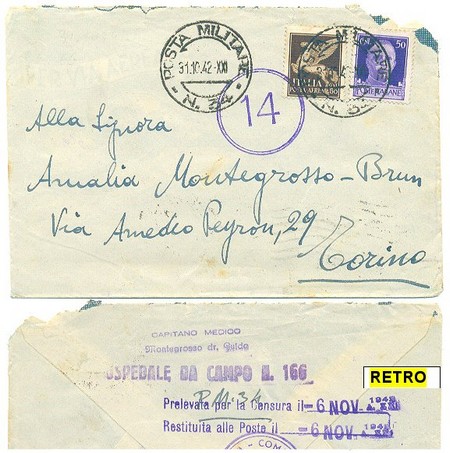 POSTA MILITARE
31.10.42-XXI
N. 34
14
POSTA MILITARE
N. 34
ITALIA
50
POSTE ITALIANE
Alla Signora
Amalia Montegrosso-Brun
Via Amedeo Peyron, 29
Torino
CAPITANO MEDICO
Montegrosso dr. Guido
OSPEDALE DA CAMPO N. 166
RETRO
P.M. 34
Prelevata per la Censura il -6 NOV. 1942
Restituita alle Poste il -6 NOV. 1942
COM